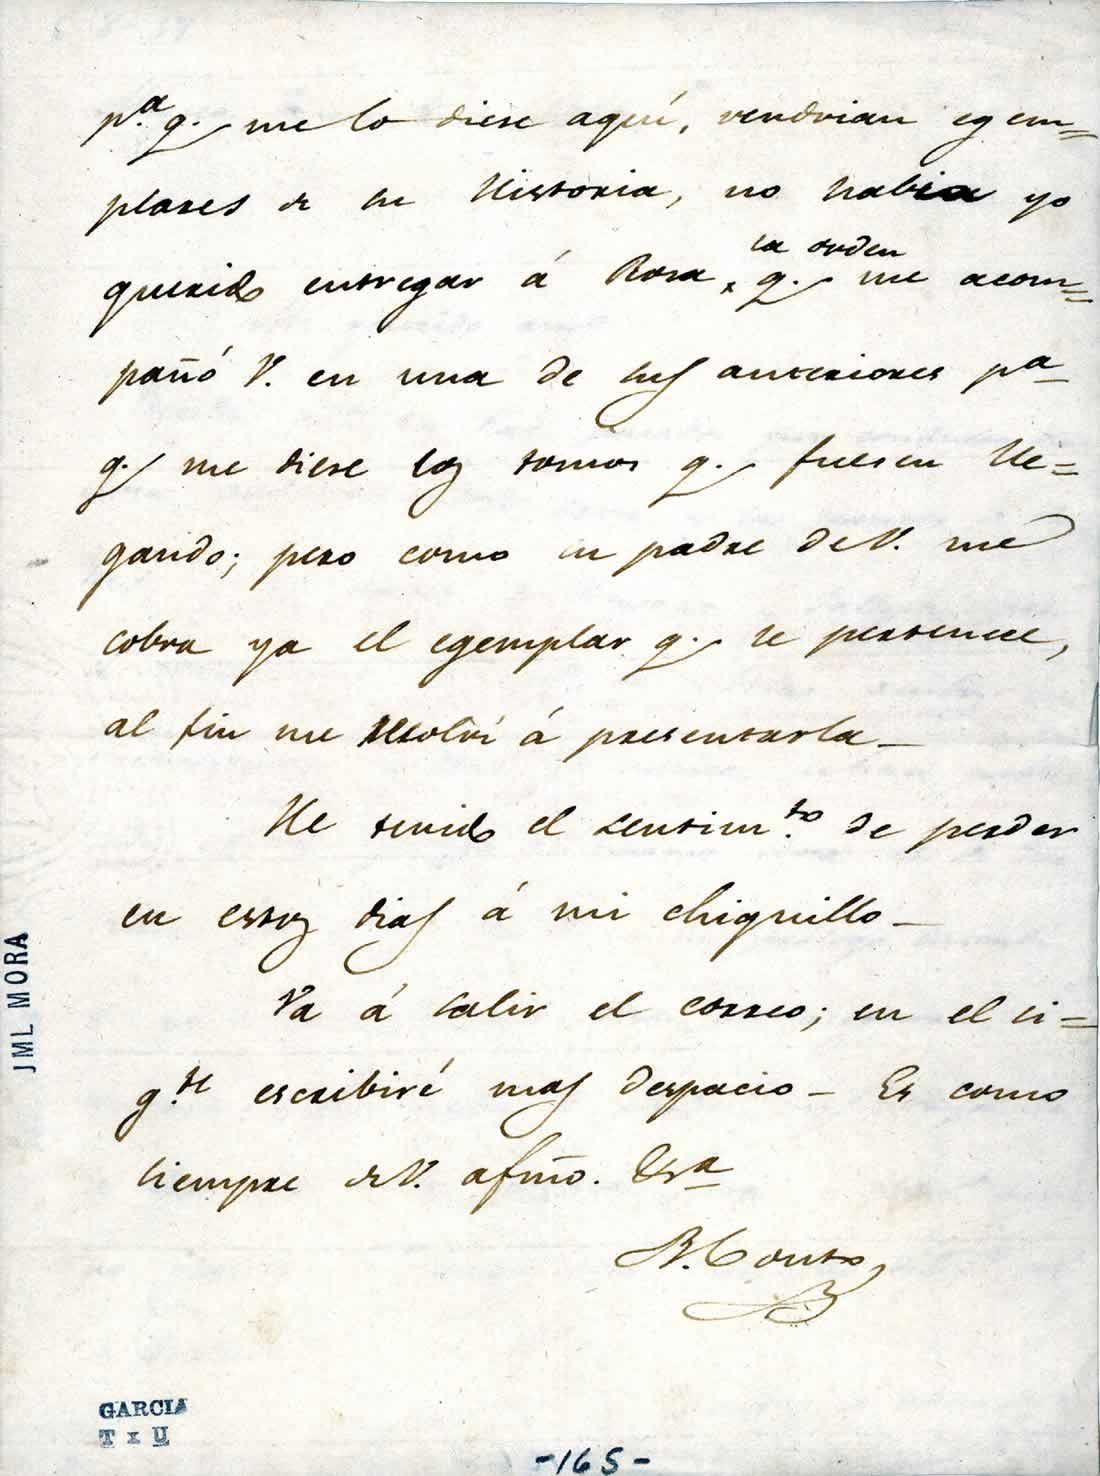 p.ª q. me lo diese aquí, vendrian egem=
plares de su Historia, no habia yo
la orden
querido entregar á Rosa ˰ q. me acom=
pañó V. en una de sus anteriores pª
q. me diese los tomos q. fuesen lle=
gando; pero como su padre de V. me
cobra ya el egemplar q. le pertenece,
al fin me resolví á presentarla_
He tenido el sentim.to de perder
en estos dias á mi chiquillo_
Va á salir el correo; en el si=
g.te escribiré mas despacio_ Es como
siempre de V. afmõ. &ra
B. Couto
JML MORA
GARCIA
T x U
-165-